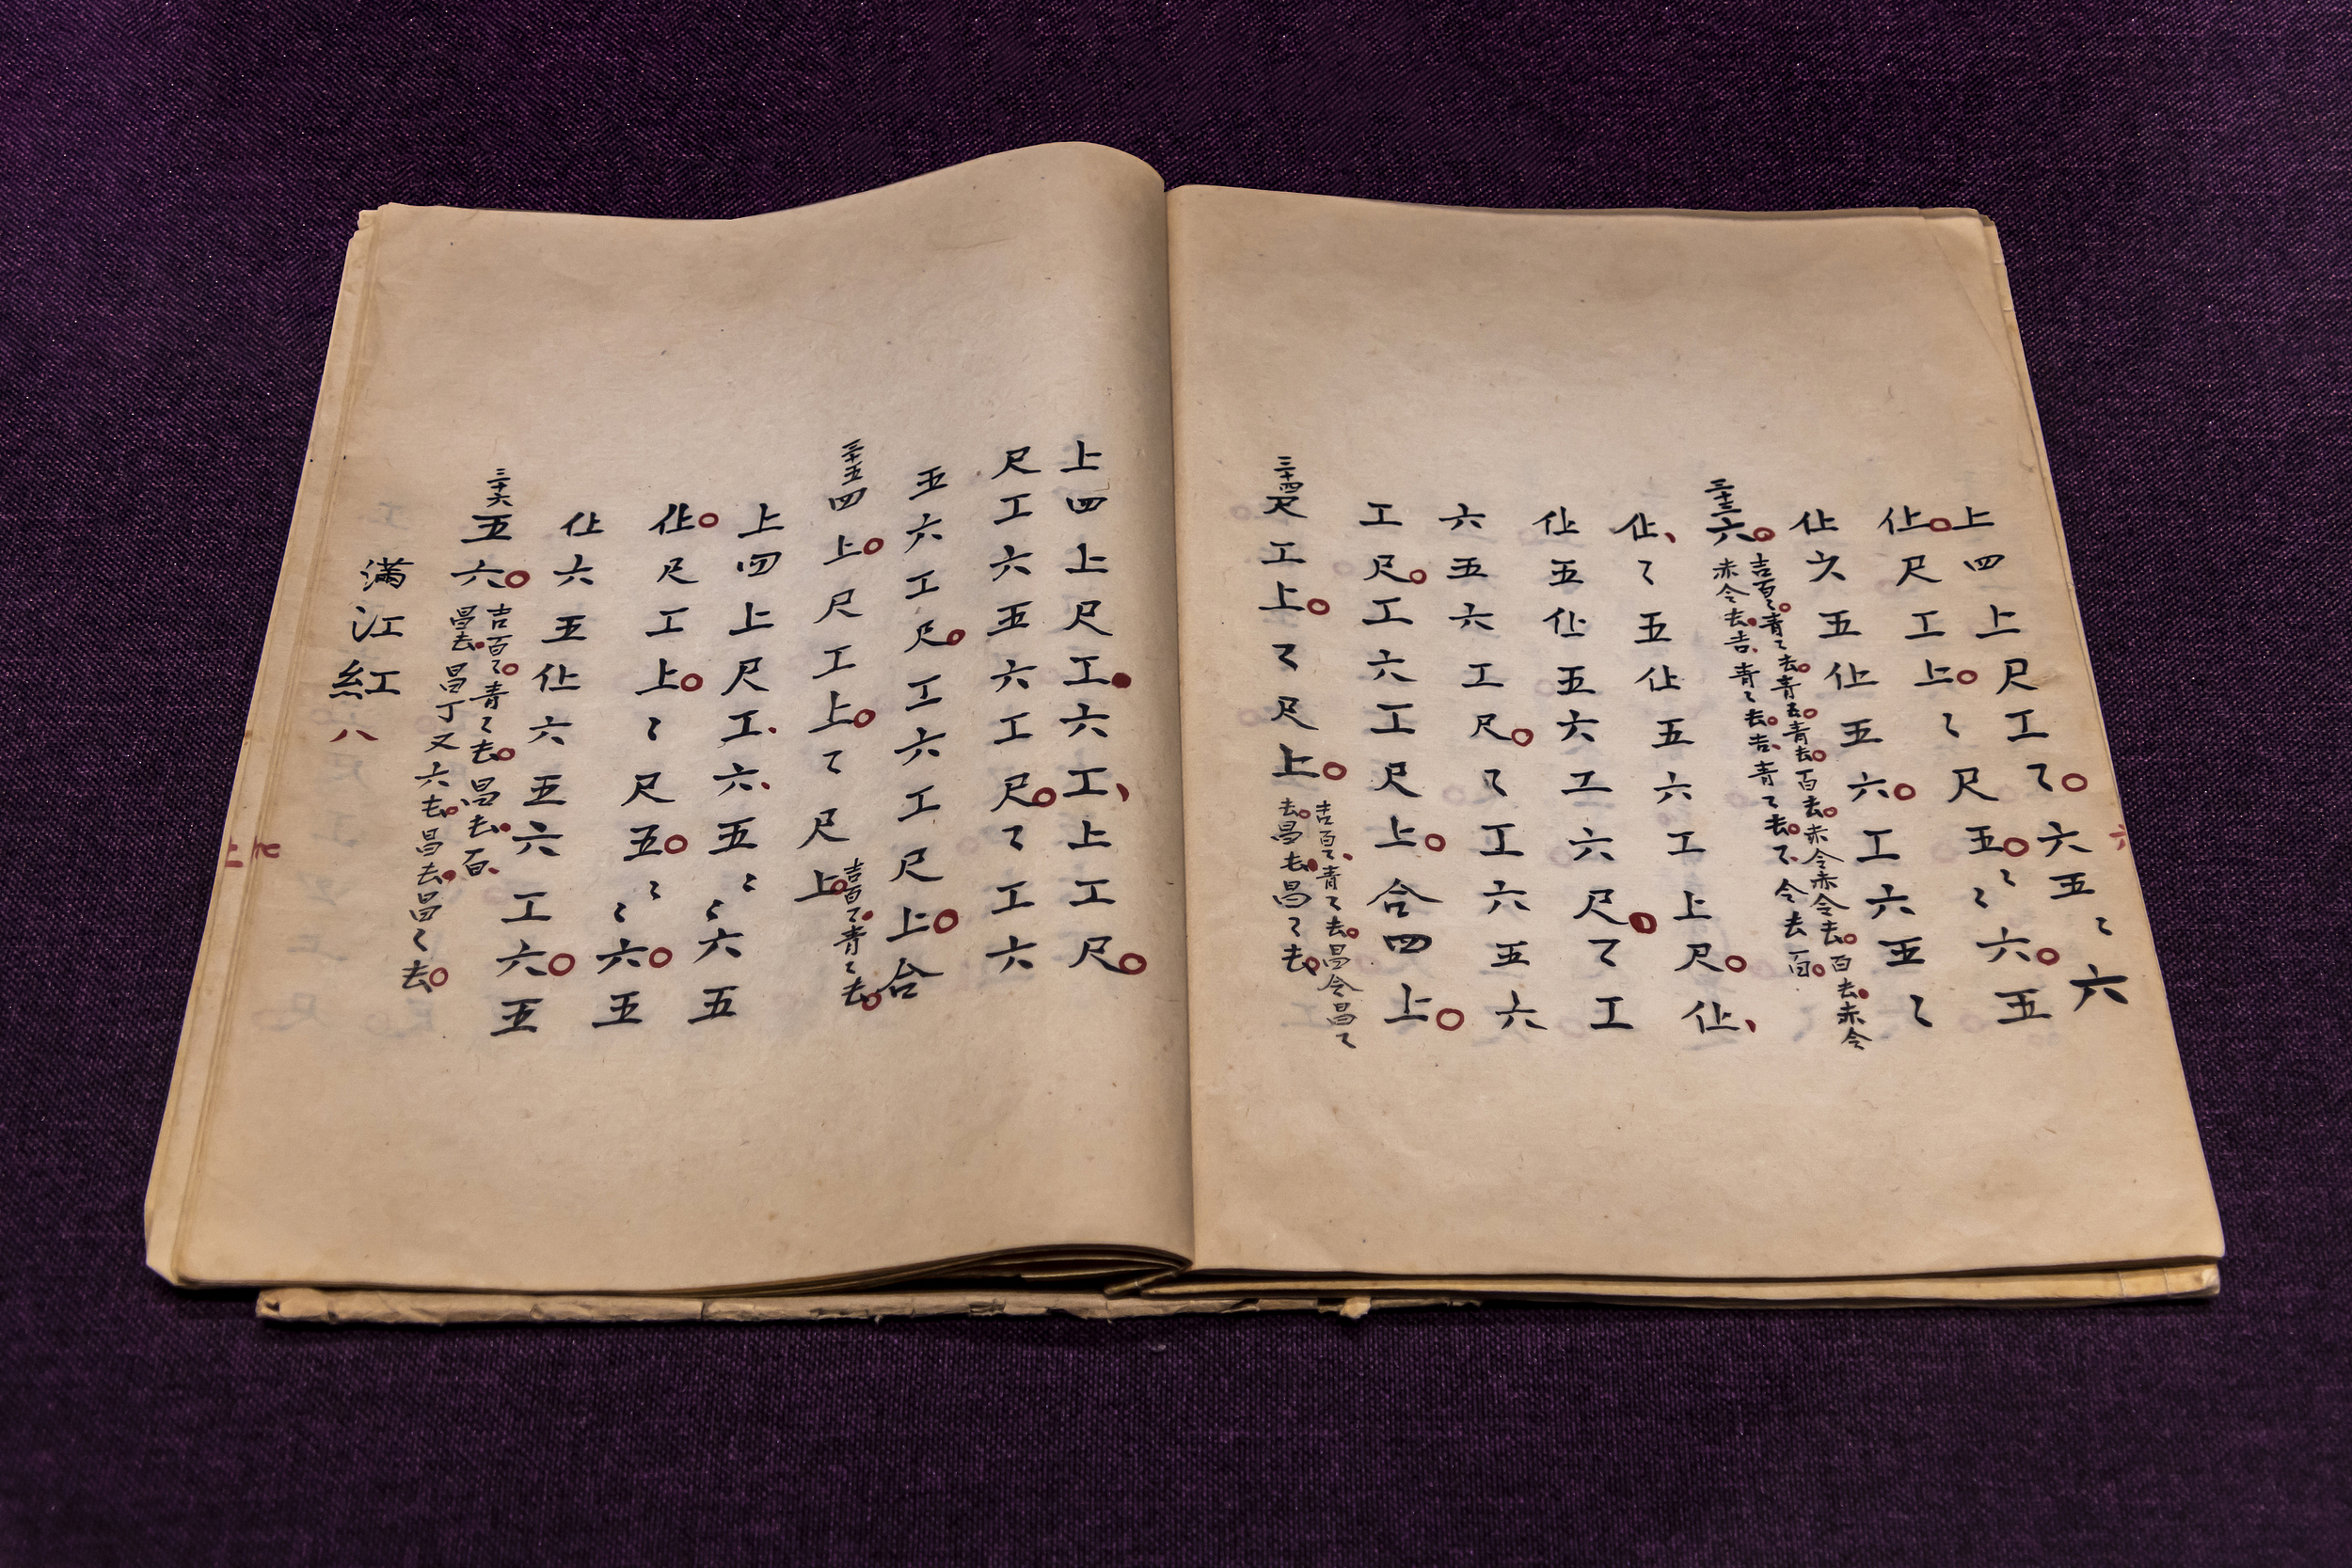 上四上尺工〻六五〻六
仩尺工上〻尺五〻〻六五
仩六五仩五六工六五〻
三十三
六
吉百〻青〻去青五青去百去赤令赤令去百去赤令
赤令去吉青〻去吉青〻去〻令去百
仩〻五仩五六工上尺仩
仩五仩五六工六尺〻工
六五六工尺〻工六五六
工尺工六工尺上合四上
三十四
尺工上〻尺上
吉百〻青〻去昌令昌〻
去昌去昌〻去
上四上尺工六工上工尺
尺工六五六工尺〻工六
五六工尺工六工尺上合
三十五
四上尺工上〻尺上
吉百〻青〻去
上四上尺工六五〻〻六五
仩尺工上〻尺五〻〻六五
仩六五仩六五六工六五
三十六
五六
吉百〻青〻去昌去百
昌去昌丁又六去昌去昌〻去
滿江紅
八